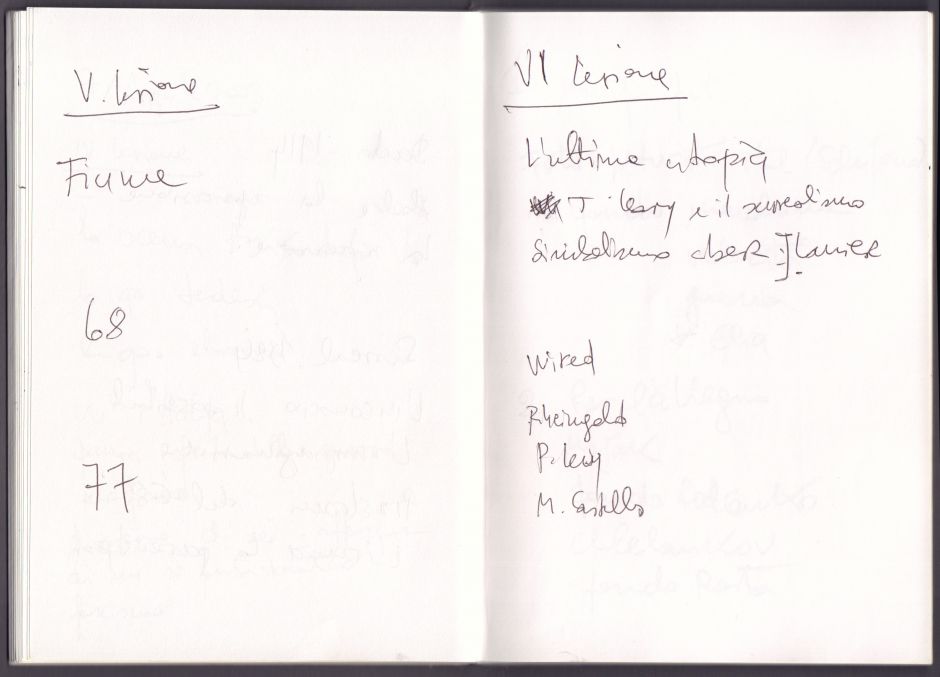 V. Lezione
Fiume
68
77
VI Lezione
L'ultima utopia
T. Leary e il surrealismo
simbolismo cber J. Lanier
Wired
Rheingold
P. Levy
M. Castells